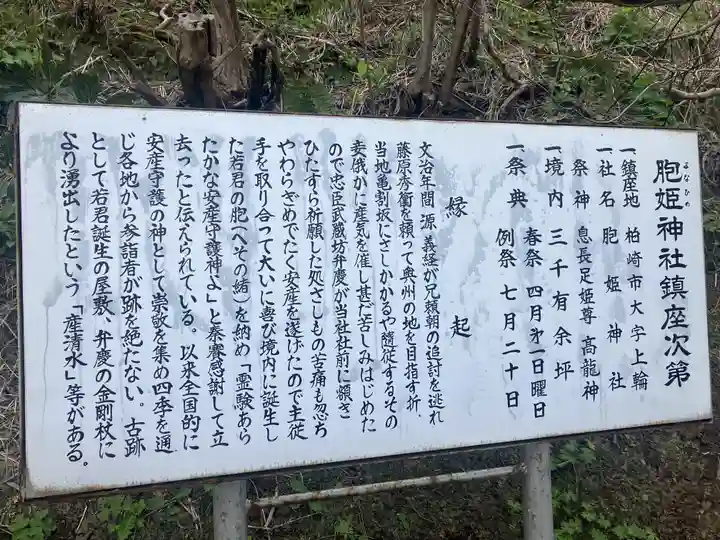 胞姫神社鎮座次第
よなひめ
一鎮座地 柏崎市大字上輪
一社名 胞姫神社
祭神 息長足姫尊 高龍神
一境内 三千有余坪
一祭典 春祭 四月第一日曜日
例祭 七月二十日
縁起
文治年間源義経が兄頼朝の追討を逃れ
藤原秀衡を頼って奥州の地を目指す折
当地亀割坂にさしかかるや随従するその
妾俄かに産気を催し甚だ苦しみはじめた
ので忠臣武蔵坊弁慶が当社社前に額き
ひたすら祈願した処さしもの苦痛も忽ち
やわらぎめでたく安産を遂げたので主従
手を取り合って大いに喜び境内に誕生し
た若君の胞(へその緒)を納め「霊験あら
たかな安産守護神よ」と奏讐感謝して立
去ったと伝えられている。以来全国的に
安産守護の神として崇敬を集め四季を通
じ各地から参詣者が跡を絶たない。古跡
として若君誕生の屋敷、弁慶の金剛杖に
より湧出したという「産清水」等がある。